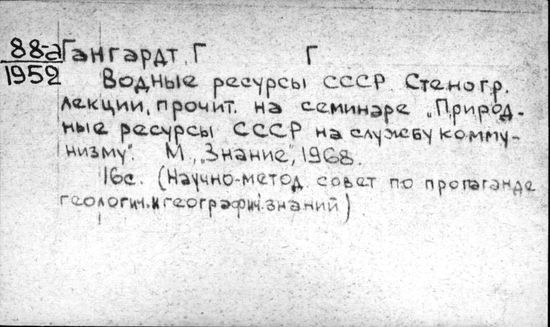 88-а Гангардт, Г Г
1952
Водные ресурсы СССР. Стеногр.
лекции, прочит. на семинаре „Природ-
ные ресурсы СССР на службу комму-
низму". М., „Знание", 1968.
16с. (Научно-метод. совет по пропаганде
геологич. и географич. знаний)